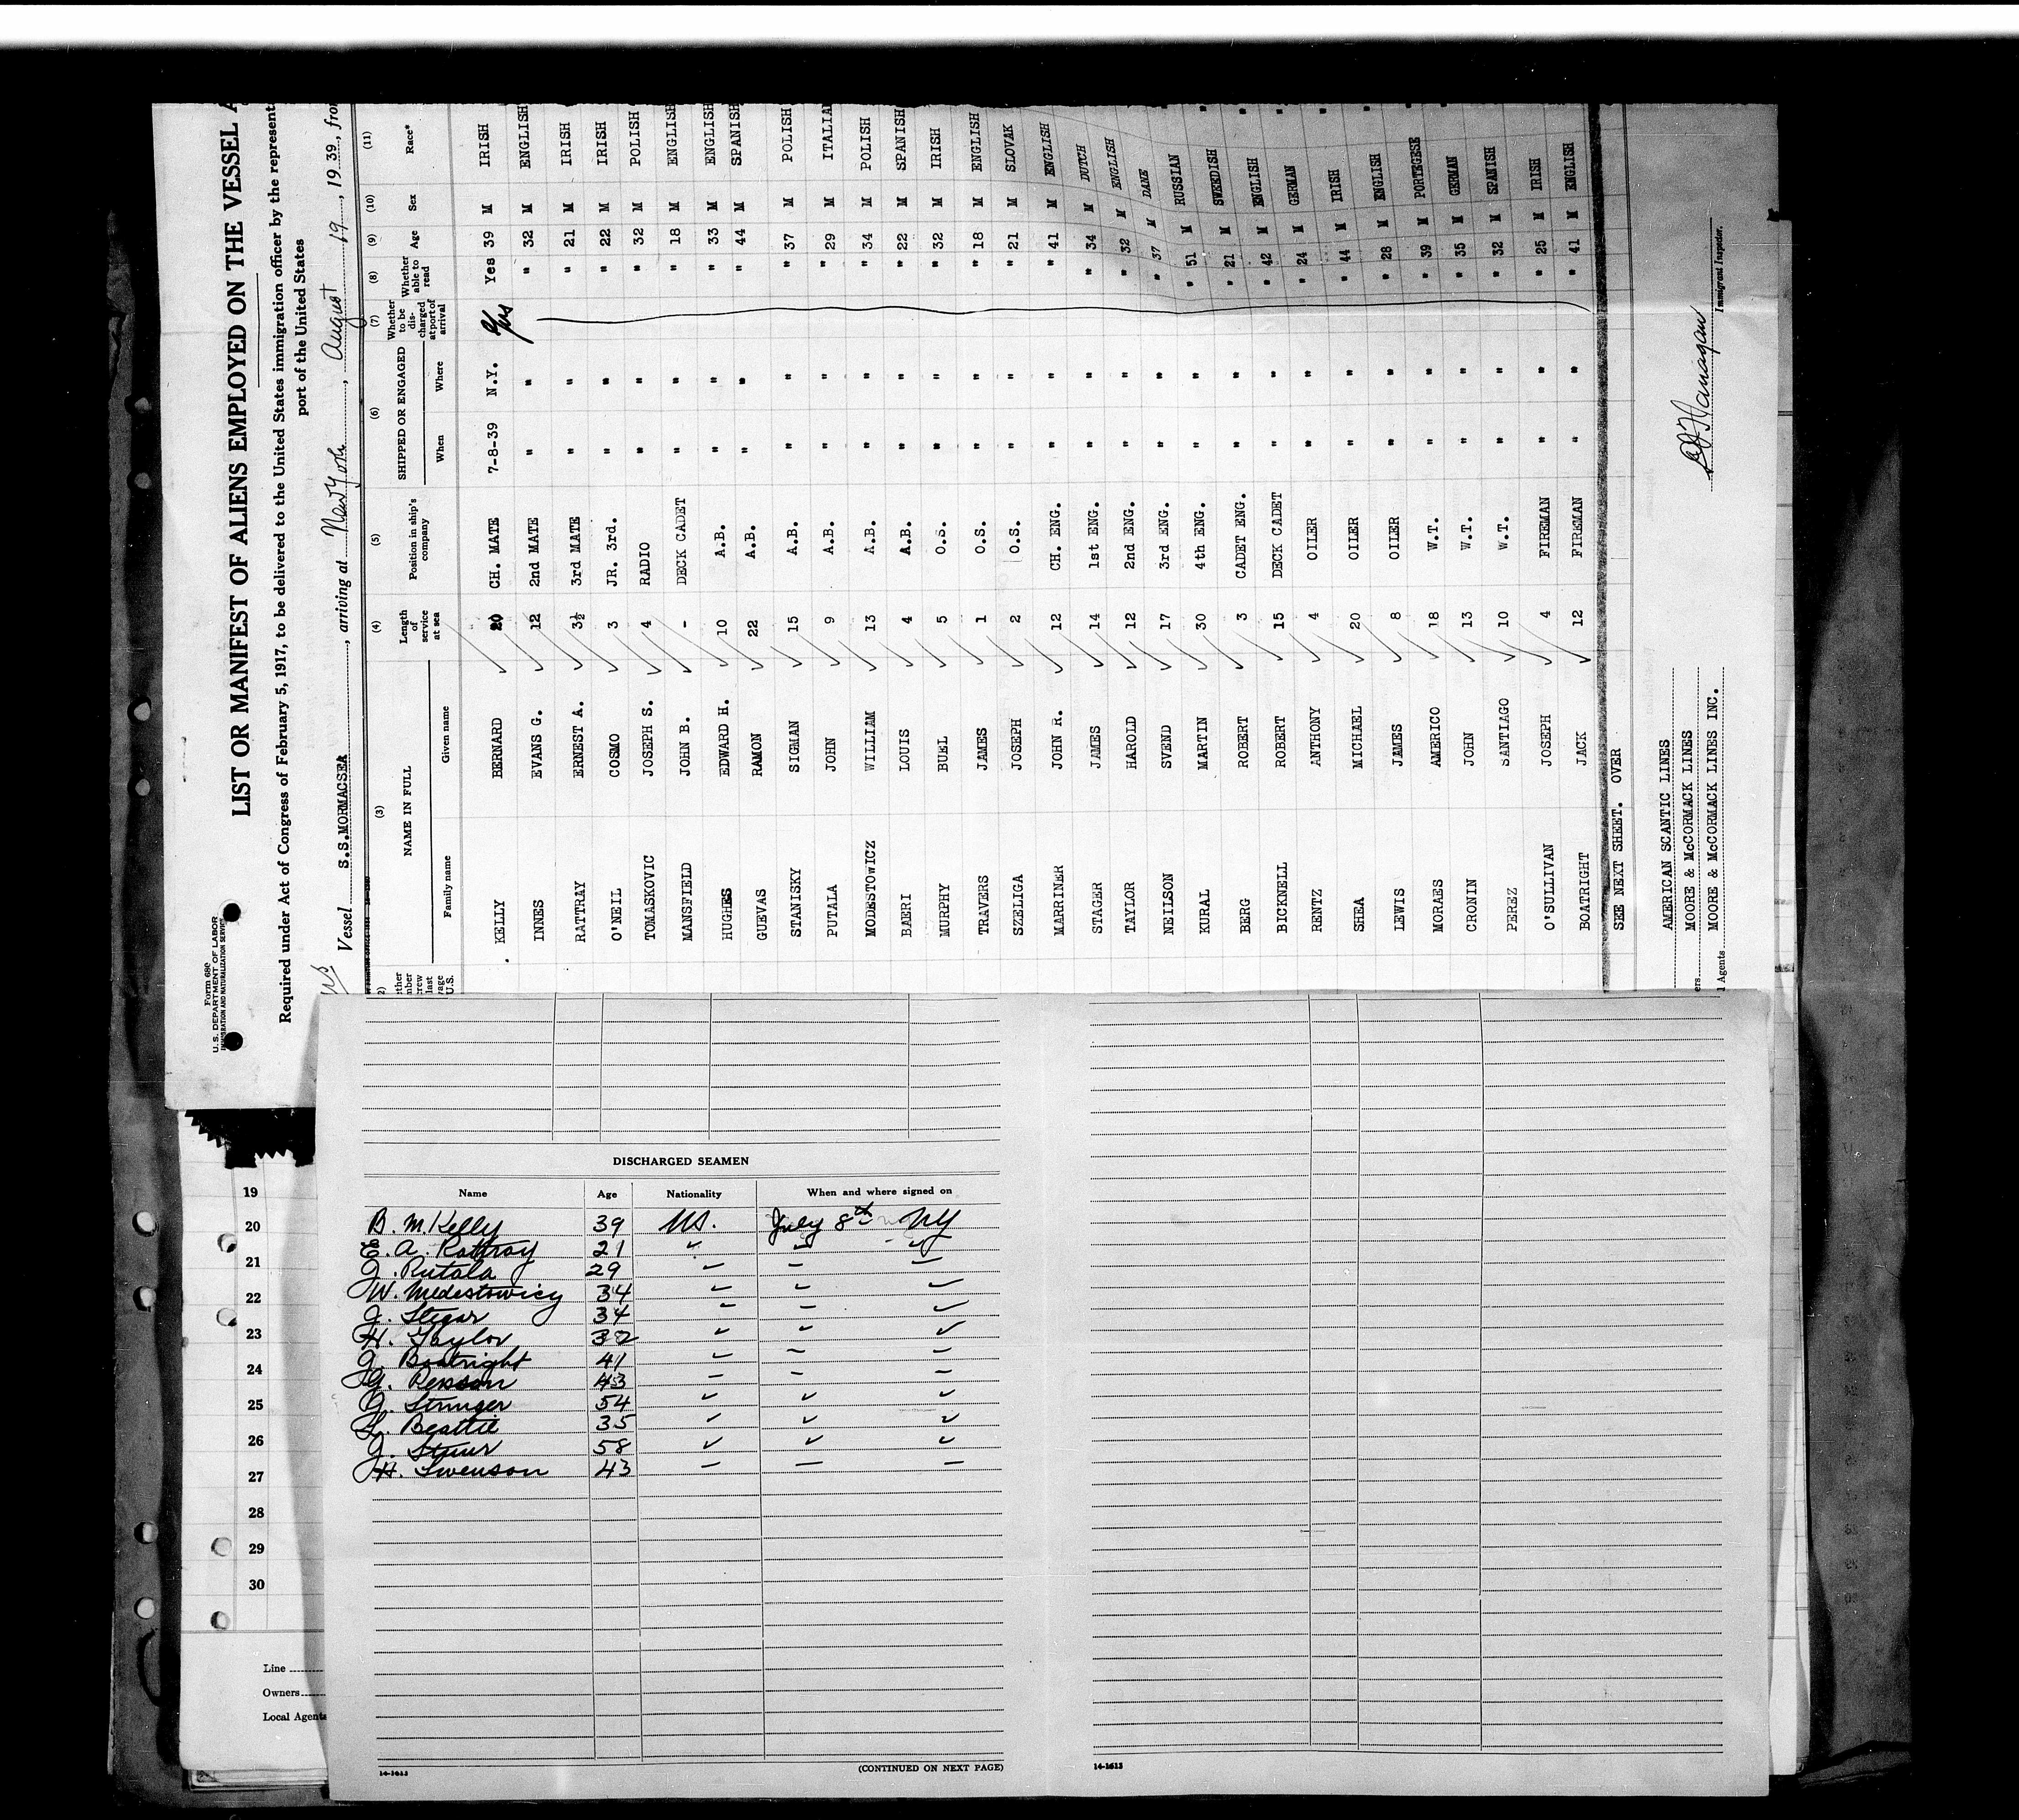 Form 680
U. S. DEPARTMENT OF LABOR
IMMIGRATION AND NATURALIZATION SERVICE
LIST OR MANIFEST OF ALIENS EMPLOYED ON THE VESSEL A
Required under Act of Congress of February 5, 1917, to be delivered to the United States immigration officer by the represent
port of the United States
Vessel S.S.MORMACSEA, arriving at New York, August 19, 1939, fro
(3) (4) (5) (6) (7) (8) (9) (10) (11)
NAME IN FULL Length of service at sea Position in ship's company SHIPPED OR ENGAGED Whether to be discharged at port of arrival Whether able to read Age Sex Race*
Family name Given name When Where
KELLY BERNARD 20 CH. MATE 7-8-39 N.Y. Yes Yes 39 M IRISH
INNES EVANS G. 12 2nd MATE " " " 32 M ENGLISH
RATTRAY ERNEST A. 3½ 3rd MATE " " " 21 M IRISH
O'NEIL COSMO 3 JR. 3rd. " " " 22 M IRISH
TOMASKOVIC JOSEPH S. 4 RADIO " " " 32 M POLISH
MANSFIELD JOHN B. - DECK CADET " " " 18 M ENGLISH
HUGHES EDWARD H. 10 A.B. " " " 33 M ENGLISH
GUEVAS RAMON 22 A.B. " " " 44 M SPANISH
STANISKY SIGMAN 15 A.B. " " " 37 M POLISH
PUTALA JOHN 9 A.B. " " " 29 M ITALIA
MODESTOWICZ WILLIAM 13 A.B. " " " 34 M POLISH
BAERI LOUIS 4 A.B. " " " 22 M SPANISH
MURPHY BUEL 5 O.S. " " " 32 M IRISH
TRAVERS JAMES 1 O.S. " " " 18 M ENGLISH
SZELIGA JOSEPH 2 O.S. " " " 21 M SLOVAK
MARRINER JOHN R. 12 CH. ENG. " " " 41 M ENGLISH
STAGER JAMES 14 1st ENG. " " " 34 M DUTCH
TAYLOR HAROLD 12 2nd ENG. " " " 32 M ENGLISH
NEILSON SVEND 17 3rd ENG. " " " 37 M DANE
KURAL MARTIN 30 4th ENG. " " " 51 M RUSSIAN
BERG ROBERT 3 CADET ENG. " " " 21 M SWEEDISH
BICKNELL ROBERT 15 DECK CADET " " " 42 M ENGLISH
RENTZ ANTHONY 4 OILER " " " 24 M GERMAN
SHEA MICHAEL 20 OILER " " " 44 M IRISH
LEWIS JAMES 8 OILER " " " 28 M ENGLISH
MORAES AMERICO 18 W.T. " " " 39 M PORTEGESE
CRONIN JOHN 13 W.T. " " " 35 M GERMAN
PEREZ SANTIAGO 10 W.T. " " " 32 M SPANISH
O'SULLIVAN JOSEPH 4 FIREMAN " " " 25 M IRISH
BOATRIGHT JACK 12 FIREMAN " " " 41 M ENGLISH
SEE NEXT SHEET. OVER
AMERICAN SCANTIC LINES
MOORE & McCORMACK LINES
l Agents MOORE & McCORMACK LINES INC.
Immigrant Inspector.
DISCHARGED SEAMEN
Name Age Nationality When and where signed on
B. M. Kelly 39 US. July 8th NY
E. A. Rattray 21
J. Putala 29
W. Medestowicy 34
J. Stegar 34
H. Taylor 32
J. Boatright 41
54
L. Beattie 35
58
H. Swenson 43
19
20
21
22
23
24
25
26
27
28
29
30
Line
Owners
Local Agents
14-1613
(CONTINUED ON NEXT PAGE)
14-1613